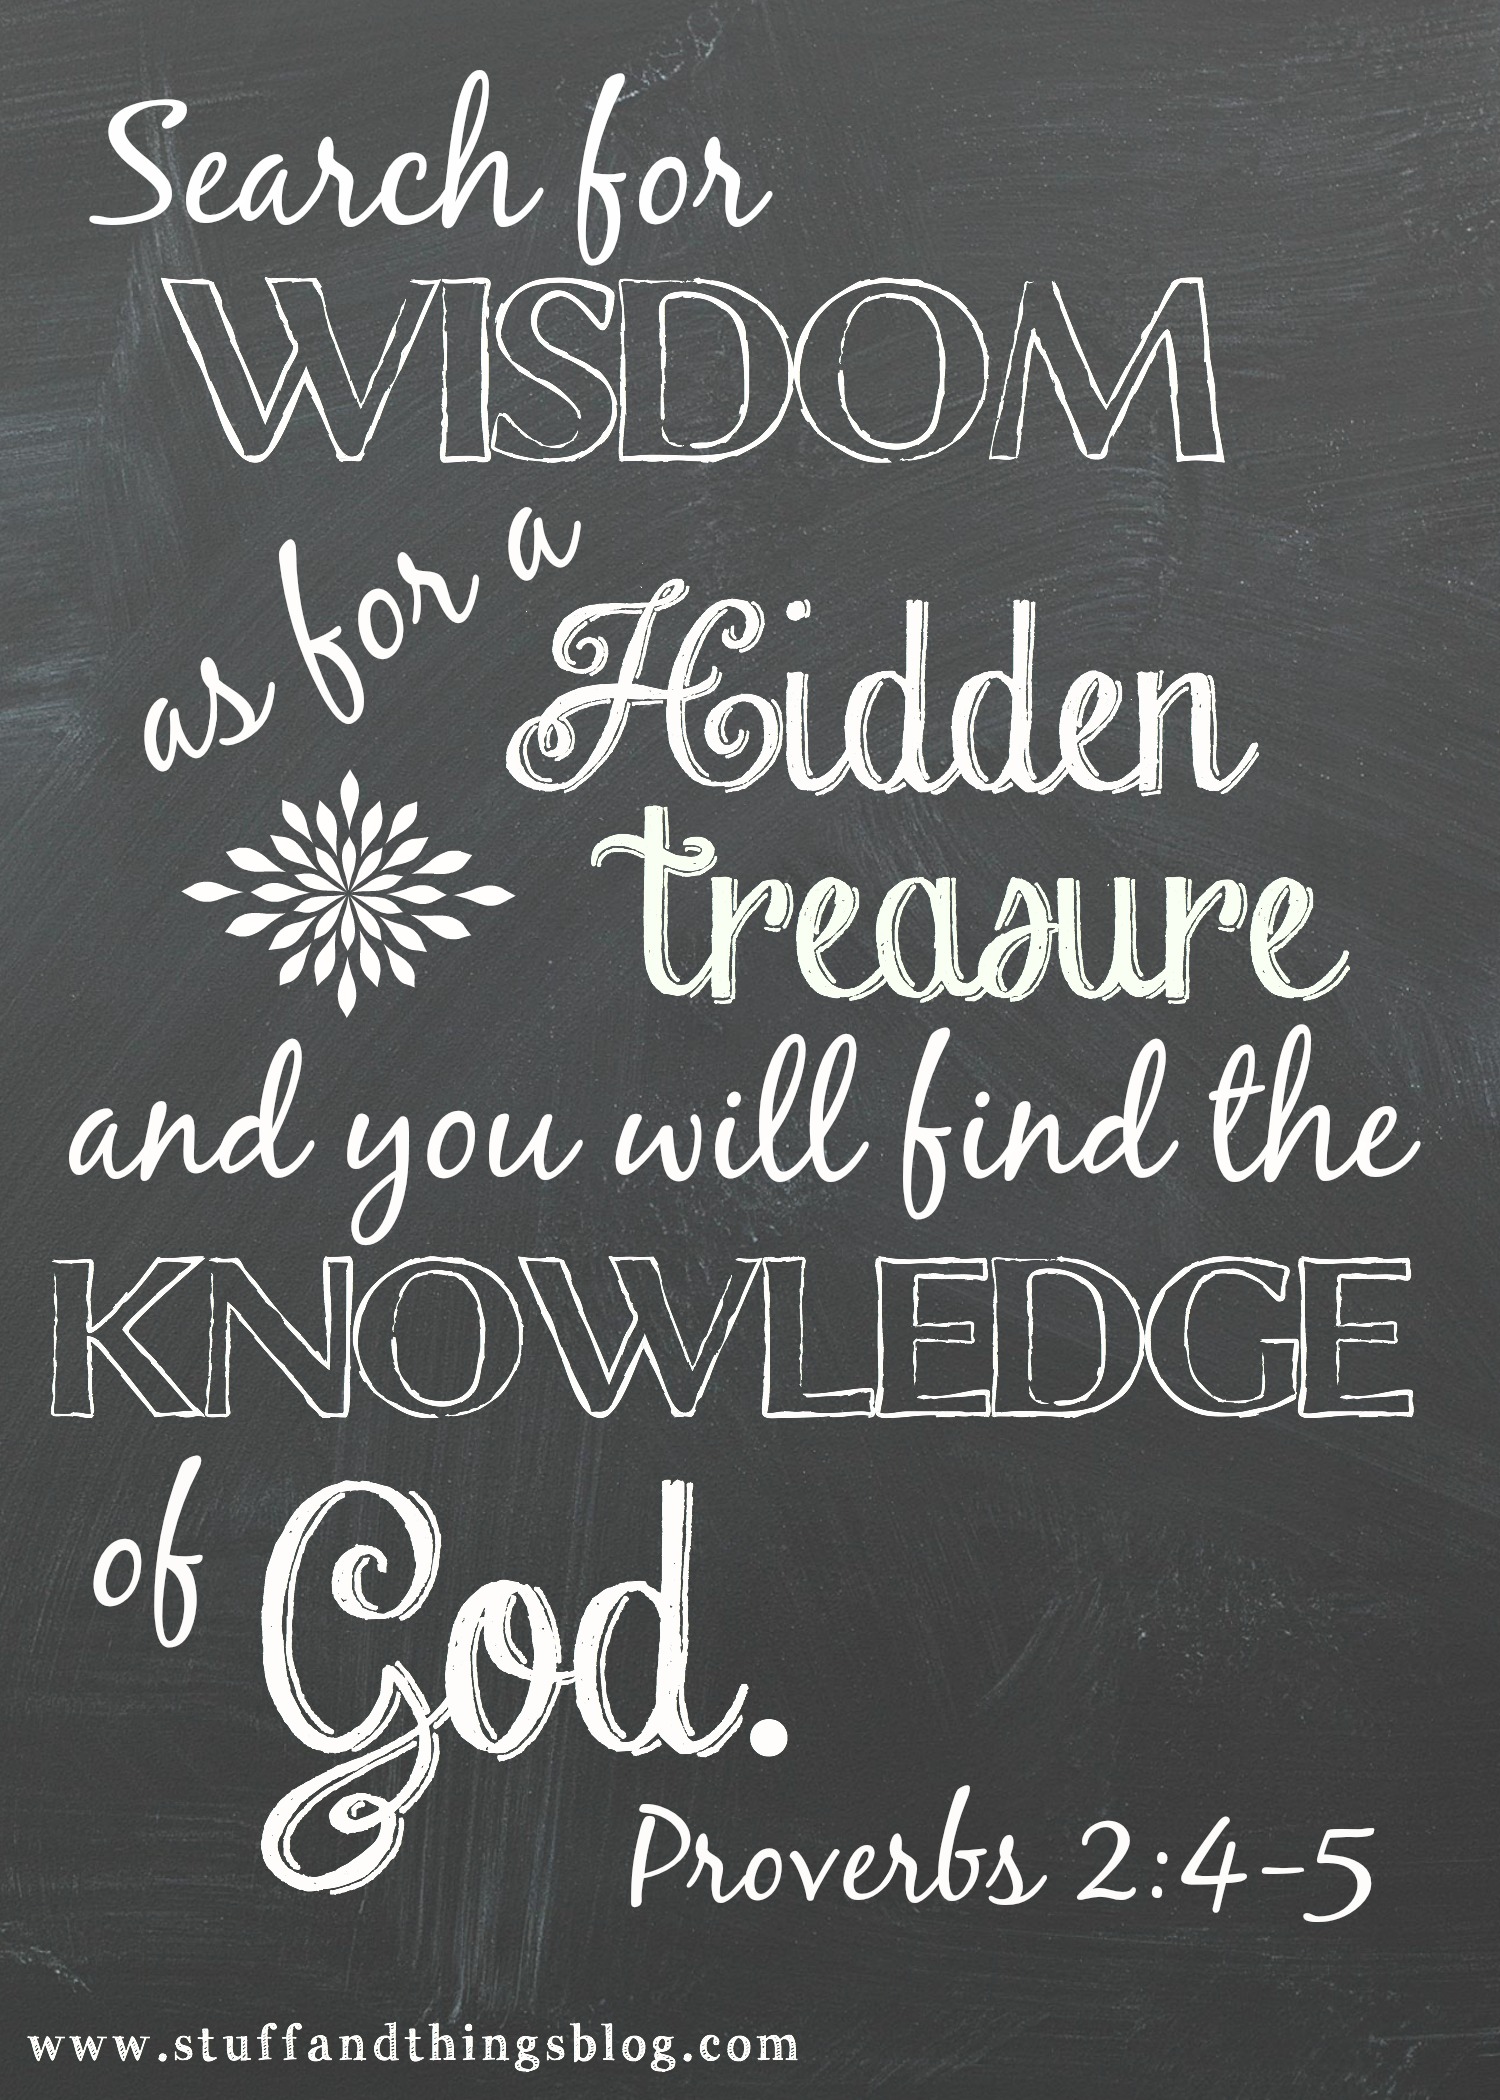 Search for
WISDOM
as for a
Hidden
treasure
and you will find the
KNOWLEDGE
of God.
Proverbs 2:4-5
www.stuffandthingsblog.com